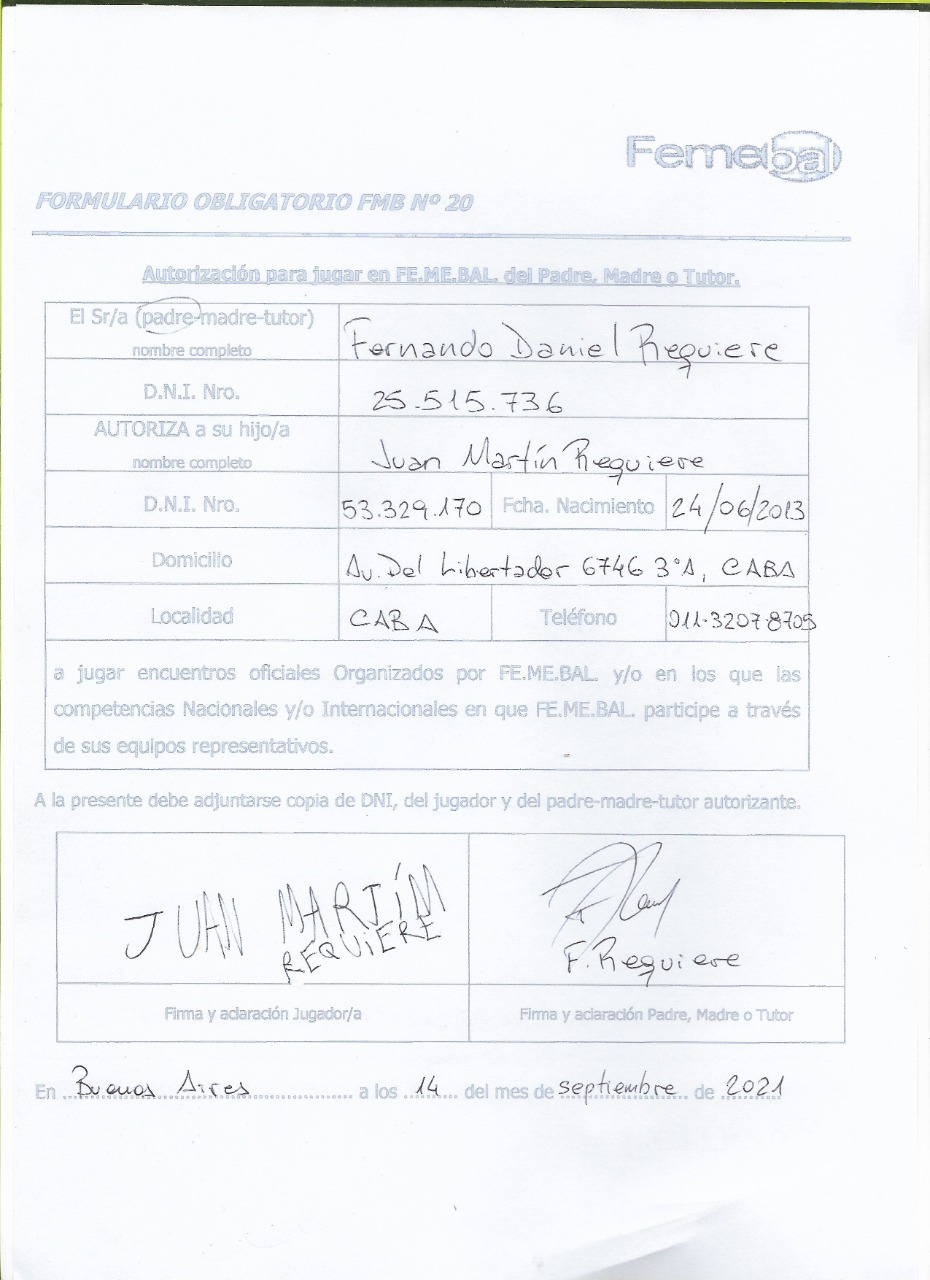 Femebal
FORMULARIO OBLIGATORIO FMB Nº 20
Autorización para jugar en FE.ME.BAL. del Padre, Madre o Tutor.
El Sr/a (padre-madre-tutor)
nombre completo
Fernando Daniel Requiere
D.N.I. Nro.
25.515.736
AUTORIZA a su hijo/a
nombre completo
Juan Martín Requiere
D.N.I. Nro.
53.329.170
Fcha. Nacimiento
24/06/2013
Domicilio
Av. Del Libertador 6746 3°A, CABA
Localidad
CABA
Teléfono
011-3207-8705
a jugar encuentros oficiales Organizados por FE.ME.BAL. y/o en los que las
competencias Nacionales y/o Internacionales en que FE.ME.BAL. participe a través
de sus equipos representativos.
A la presente debe adjuntarse copia de DNI, del jugador y del padre-madre-tutor autorizante.
JUAN MARTÍM
REQUIERE
F. Requiere
Firma y aclaración Jugador/a
Firma y aclaración Padre, Madre o Tutor
En Buenos Aires a los 14 del mes de septiembre de 2021